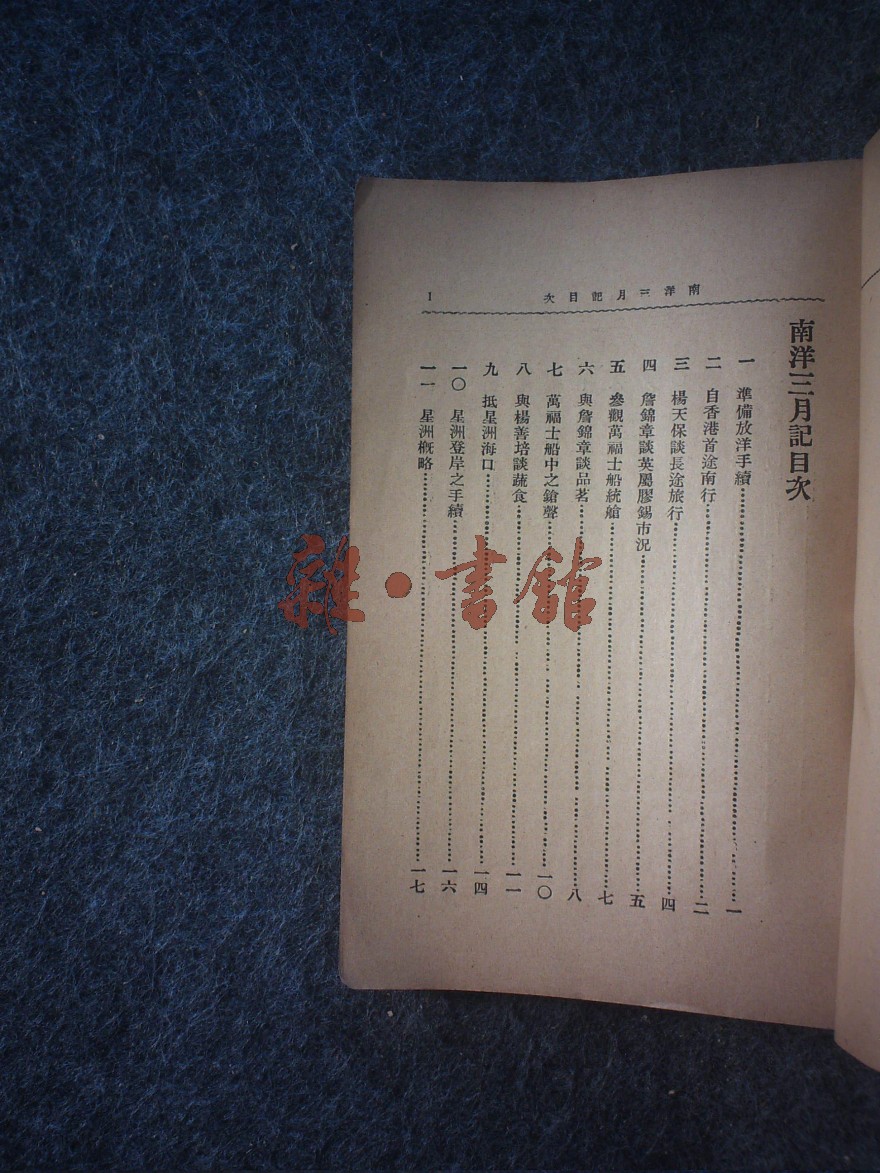 南洋三月記目次
1
南洋三月記目次
一 準備放洋手續 一
二 自香港首途南行 二
三 楊天保談長途旅行 四
四 詹錦章談英屬膠錫市況 五
五 參觀萬福士船統艙 七
六 與詹錦章談品茗 八
七 萬福士船中之鎗聲 一〇
八 與楊善培談蔬食 一一
九 抵星洲海口 一四
一〇 星洲登岸之手續 一六
一一 星洲概略 一七
雜·書館